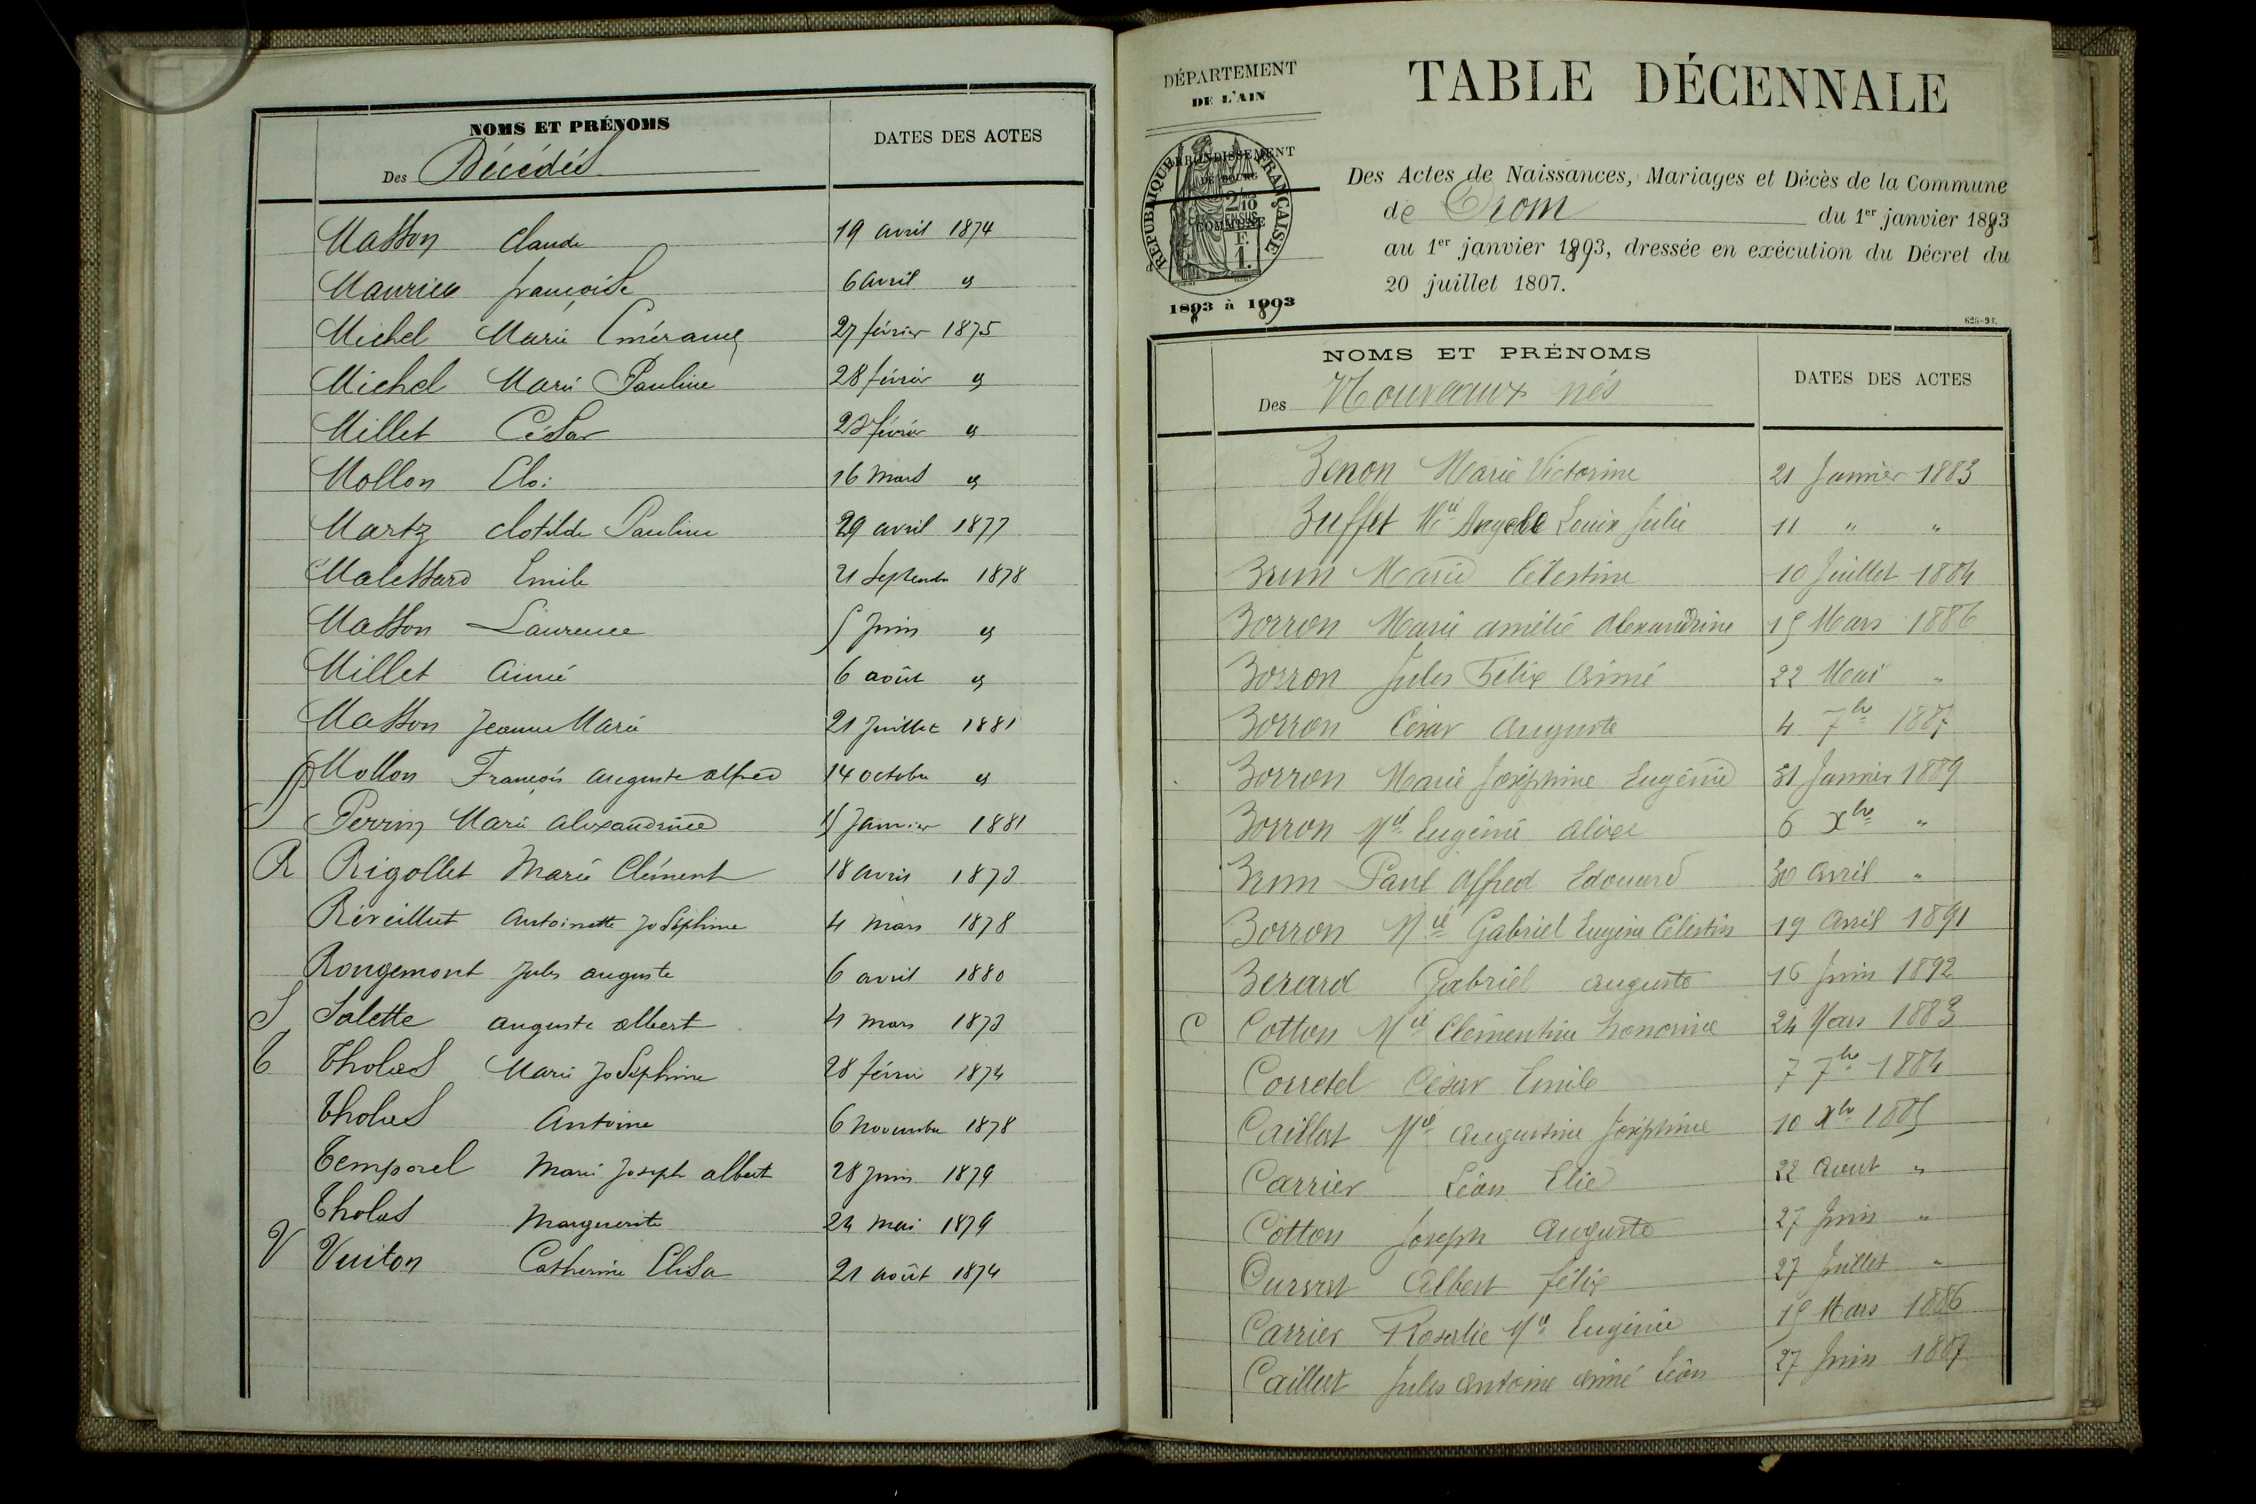 NOMS ET PRÉNOMS
Des Décédés
DATES DES ACTES
Masson Claude 19 avril 1874
Maurice françoise 6 avril "
Michel Marie 27 février 1875
Michel Marie Pauline 28 février "
Millet César 23 février "
Mollon Eloi 16 mars "
Martz Clotilde Pauline 29 avril 1877
Malessard Emile 21 Septembre 1878
Masson Laurence 5 Juin "
Millet Aimé 6 août "
Masson Jeanne Marie 21 Juillet 1881
Mollon François auguste alfred 14 octobre "
P Perrin Marie alexandrine Janvier 1881
R Rigollet Marie Clément 18 avril 1873
Réveillut Antoinette Joséphine 4 mars 1878
Rougemont Jules auguste 6 avril 1880
S Salette auguste albert 4 mars 1873
T Tholas Marie Joséphine 28 février 1874
Tholas Antoine 6 novembre 1878
Temporel Marie Joseph albert 28 Juin 1879
Tholas Marguerite 24 mai 1879
V Vuiton Catherine Elisa 21 août 1874
DÉPARTEMENT
DE L'AIN
ARRONDISSEMENT
DE BOURG
COMMUNE
RÉPUBLIQUE FRANÇAISE
2/10
EN SUS
F.
1.
1893 à 1893
TABLE DÉCENNALE
Des Actes de Naissances, Mariages et Décès de la Commune
de Drom du 1er janvier 1883
au 1er janvier 1893, dressée en exécution du Décret du
20 juillet 1807.
NOMS ET PRÉNOMS
Des Nouveaux nés
DATES DES ACTES
Benon Marie Victorine 21 Janvier 1883
Buffet Mie Angele Louise Julie 11 " "
Brun Marie Célestine 10 Juillet 1884
Borron Marie amélie Alexandrine 15 Mars 1886
Borron Jules Félix Aimé 22 Mai "
Borron César Auguste 4 7bre 1887
Borron Marie Joséphine Eugénie 31 Janvier 1889
Borron Mie Eugénie Alice 6 Xbre "
Brun Paul Alfred Edouard 30 Avril "
Borron Mie Gabriel Eugène Célestin 19 Avril 1891
Berard Gabriel Auguste 16 Juin 1892
C Cotton Mie Clémentine honorine 24 Mars 1883
Corretel César Emile 7 7bre 1884
Caillat Mie Augustine Joséphine 10 Xbre 1885
Carrier Léon Elie 22 Aout "
Cotton Joseph Auguste 27 Juin "
Albert félix 27 Juillet "
Carrier Rosalie Mie Eugénie 15 Mars 1886
Caillat Jules Antoine Aimé Léon 27 Juin 1887